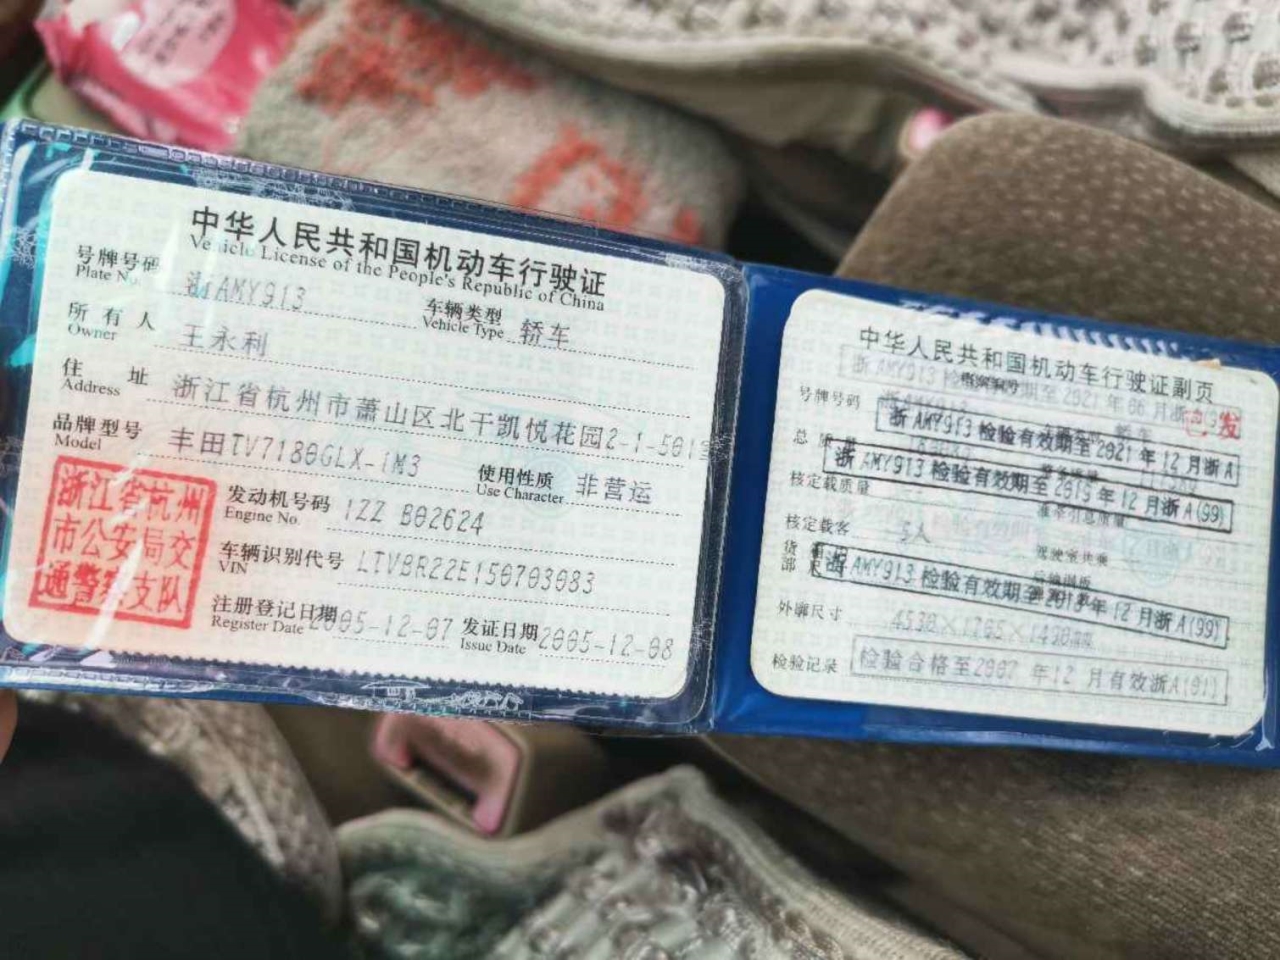 中华人民共和国机动车行驶证
Vehicle License of the People's Republic of China
号牌号码 浙AMY913 车辆类型 轿车
Plate No. Vehicle Type
所有人 王永利
Owner
住址 浙江省杭州市萧山区北干凯悦花园2-1-501室
Address
品牌型号 丰田TV7180GLX-iM3 使用性质 非营运
Model Use Character
浙江省杭州
市公安局交
通警察支队
发动机号码 1ZZ B02624
Engine No.
车辆识别代号 LTVBR22E150703083
VIN
注册登记日期 2005-12-07 发证日期 2005-12-08
Register Date Issue Date
中华人民共和国机动车行驶证副页
浙AMY913 检验有效期至2021年06月浙
号牌号码
浙AMY913 检验有效期至2021年12月浙A
已发
总质量
浙AMY913 检验有效期至2019年12月浙A(99)
核定载质量
准牵引总质量
核定载客 5人
驾驶室共乘
浙AMY913 检验有效期至2018年12月浙A(99)
外廓尺寸
检验记录 检验合格至2007年12月有效浙A(01)